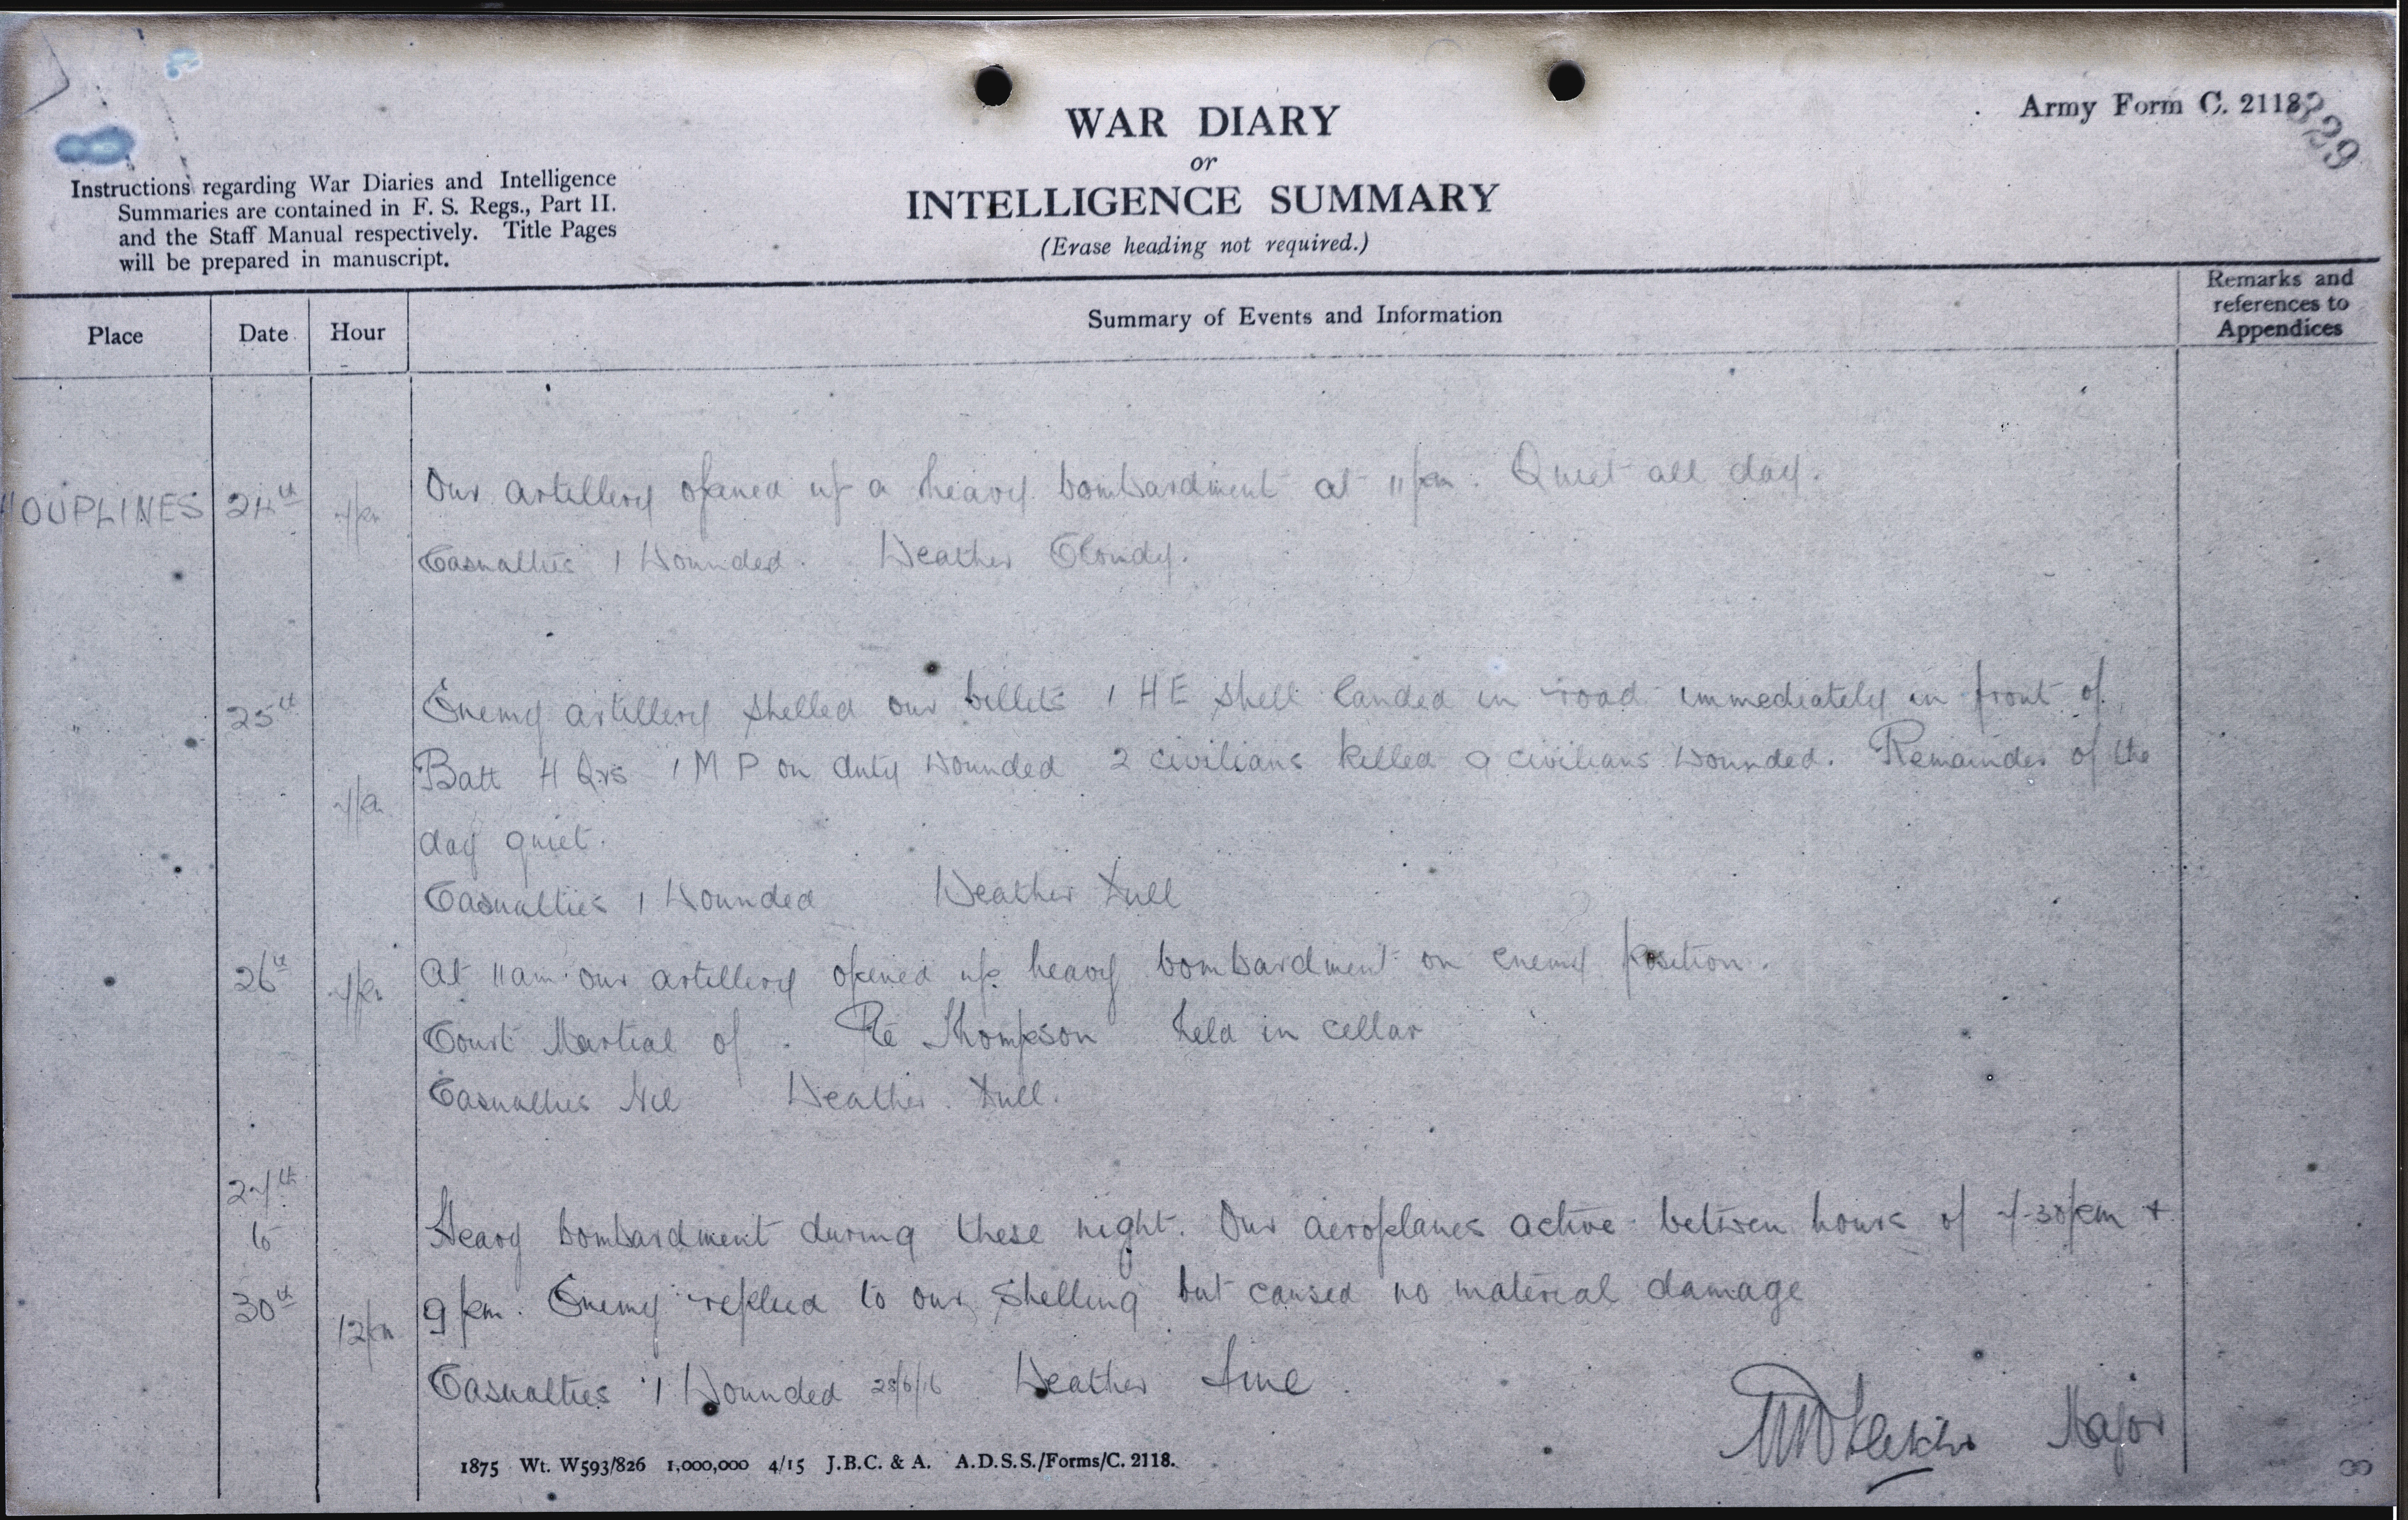 Army Form C. 2118
329
WAR DIARY
or
INTELLIGENCE SUMMARY
(Erase heading not required.)
Instructions regarding War Diaries and Intelligence
Summaries are contained in F. S. Regs., Part II.
and the Staff Manual respectively. Title Pages
will be prepared in manuscript.
Place Date Hour Summary of Events and Information Remarks and
references to
Appendices
HOUPLINES 24th 7pm Our artillery opened up a heavy bombardment at 11pm. Quiet all day.
Casualties 1 Wounded. Weather Cloudy.
" 25th Enemy artillery shelled our billets 1 HE shell landed in road immediately in front of
Batt H Qrs 1 M P on duty wounded 2 civilians killed 9 civilians wounded. Remainder of the
7pm day quiet.
Casualties 1 Wounded Weather Dull
26th 7pm At 11am our artillery opened up heavy bombardment on enemy position.
Court Martial of Pte Thompson held in cellar
Casualties Nil Weather Dull.
27th
to Heavy bombardment during these night. Our aeroplanes active between hours of 7-30pm +
30th 12pm 9pm. Enemy replied to our shelling but caused no material damage
Casualties 1 Wounded 28/6/16 Weather fine.
Major
1875 Wt. W593/826 1,000,000 4/15 J.B.C. & A. A.D.S.S./Forms/C. 2118.
8